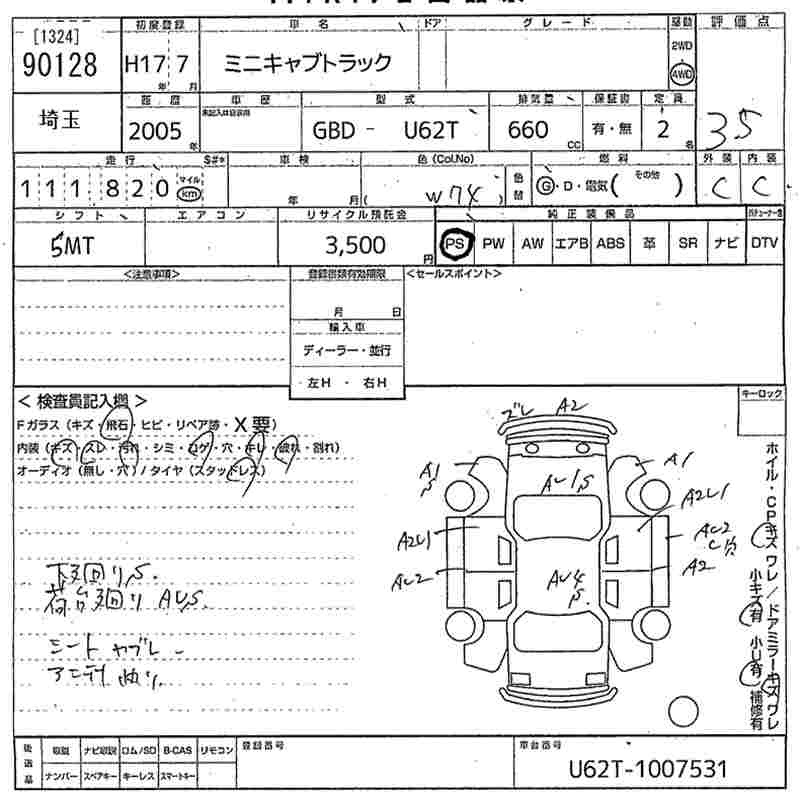 [1324]
90128
初度登録
H17 7
年 月
車名
ミニキャブトラック
ドア
グレード
駆動
2WD
4WD
評価点
3.5
埼玉
2005
年
車歴
型式
GBD - U62T
排気量
660
CC
保証書
有・無
定員
2
名
走行
S#*
111820
マイル
km
車検
年 月
色 (Col.No)
( W74 )
色替
燃料
G・D・電気( その他 )
外装
C
内装
C
シフト
5MT
エアコン
リサイクル預託金
3,500
円
純正装備品
PS PW AW エアB ABS 革 SR ナビ DTV
<注意事項>
登録書類有効期限
月 日
輸入車
ディーラー・並行
左H ・ 右H
<セールスポイント>
キーロック
<検査員記入欄>
Fガラス (キズ・飛石・ヒビ・リペア跡・X要)
内装 (キズ・スレ・汚れ・シミ・コゲ・穴・キレ・破れ・割れ)
オーディオ (無し・穴) / タイヤ (スタッドレス)
下廻りS.
荷台廻り AUS.
シート ヤブレ
ズレ A2
A1
S
AU1S
A1
A2U1
A2U1
AU2
AU2
A2
AU4
S.
ホイル・CPキズ ワレ / ドアミラーキズ ワレ
小キズ有 小U有 補修有
後送品
取説 ナビ取説 ロム/SD B-CAS リモコン
ナンバー スペアキー キーレス スマートキー
登録番号
車台番号
U62T-1007531